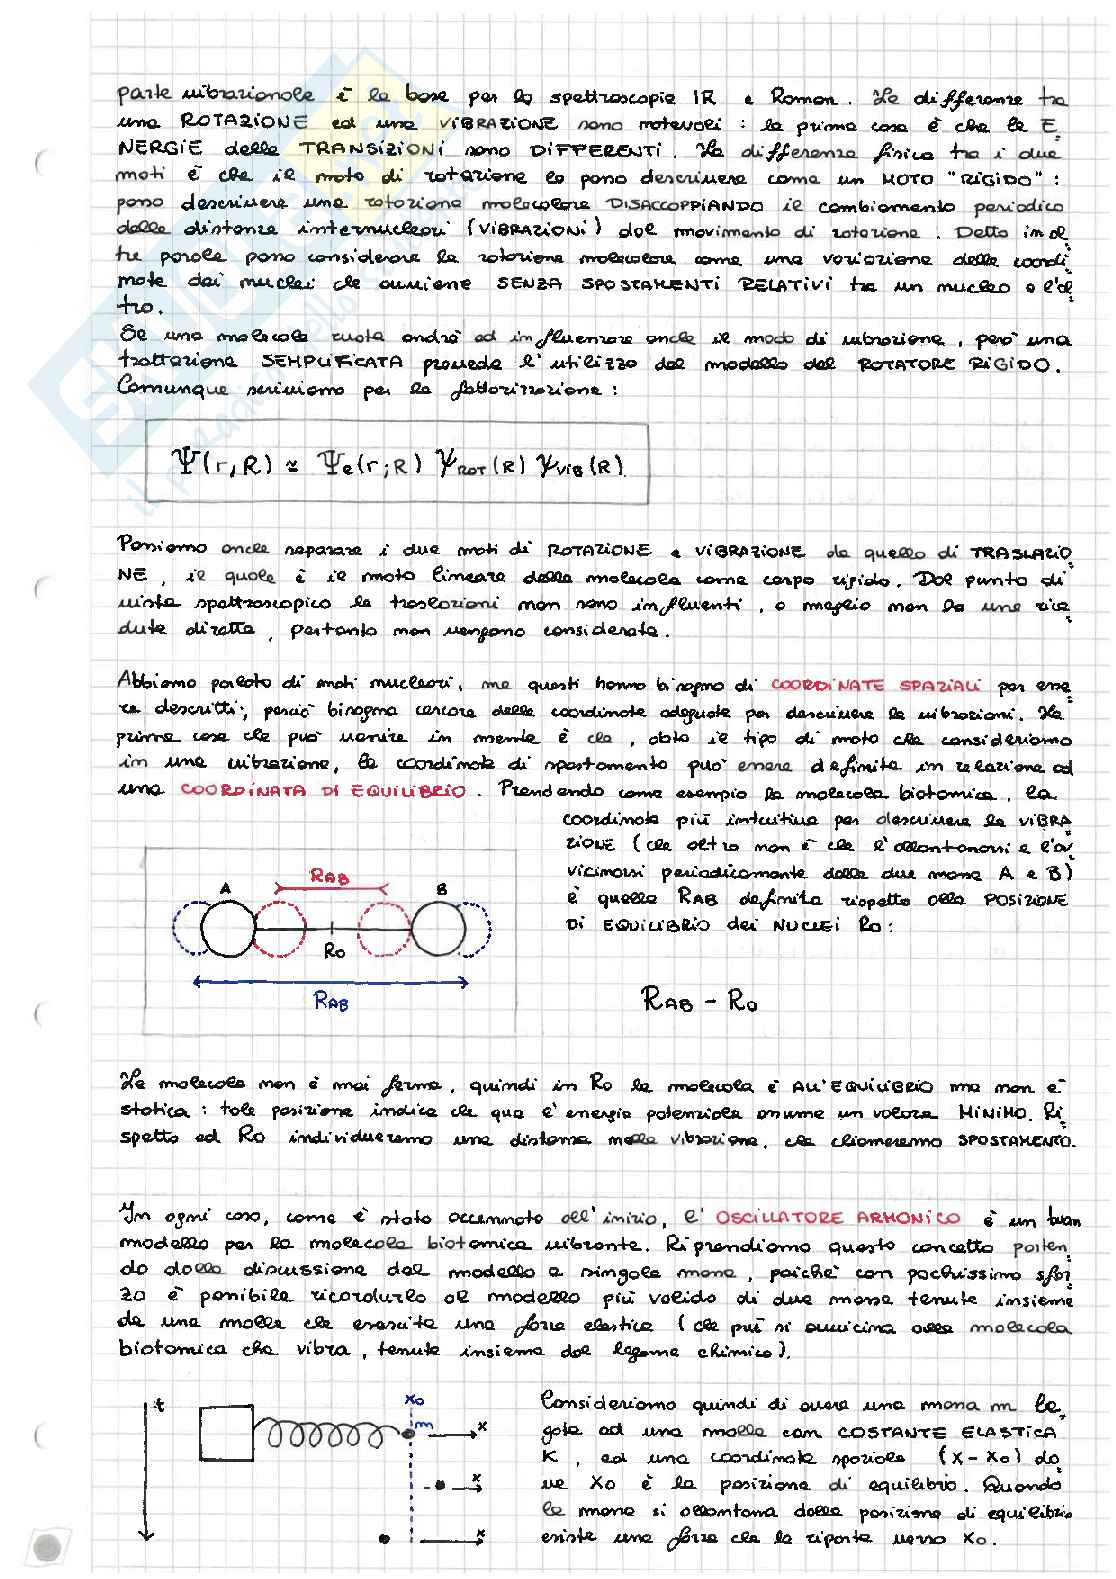 parte vibrazionale è la base per la spettroscopia IR e Raman. La differenza tra
una ROTAZIONE ed una VIBRAZIONE sono notevoli : la prima cosa è che le E
NERGIE delle TRANSIZIONI sono DIFFERENTI. La differenza fisica tra i due
moti è che il moto di rotazione lo posso descrivere come un MOTO "RIGIDO" :
posso descrivere una rotazione molecolare DISACCOPPIANDO il cambiamento periodico
delle distanze internucleari (VIBRAZIONI) dal movimento di rotazione. Detto in al
tre parole posso considerare la rotazione molecolare come una variazione delle coordi
nate dei nuclei che avviene SENZA SPOSTAMENTI RELATIVI tra un nucleo e l'al
tro.
Se una molecola ruota andrà ad influenzare anche il modo di vibrazione, però una
trattazione SEMPLIFICATA prevede l'utilizzo del modello del ROTATORE RIGIDO.
Comunque scriviamo per la fattorizzazione :
Ψ(r,R) ≃ Ψe(r;R) ψROT(R) ψVIB(R)
Possiamo anche separare i due moti di ROTAZIONE e VIBRAZIONE da quello di TRASLAZIO
NE, il quale è il moto lineare della molecola come corpo rigido. Dal punto di
vista spettroscopico le traslazioni non sono influenti, o meglio non ha una rica
duta diretta, pertanto non vengono considerate.
Abbiamo parlato di moti nucleari, ma questi hanno bisogno di COORDINATE SPAZIALI per esse
re descritti; perciò bisogna cercare delle coordinate adeguate per descrivere le vibrazioni. La
prima cosa che può venire in mente è che, dato il tipo di moto che consideriamo
in una vibrazione, la coordinata di spostamento può essere definita in relazione ad
una COORDINATA DI EQUILIBRIO. Prendendo come esempio la molecola biatomica, la
coordinata più intuitiva per descrivere la VIBRA
ZIONE (che altro non è che l'allontanarsi e l'av
vicinarsi periodicamente delle due masse A e B)
è quella RAB definita rispetto alla POSIZIONE
DI EQUILIBRIO dei NUCLEI R0 :
A RAB B
R0
RAB
RAB - R0
La molecola non è mai ferma, quindi in R0 la molecola è ALL'EQUILIBRIO ma non è
statica : tale posizione indica che qua l'energia potenziale assume un valore MINIMO. Ri
spetto ad R0 individueremo una distanza nella vibrazione, che chiameremo SPOSTAMENTO.
In ogni caso, come è stato accennato all'inizio, l'OSCILLATORE ARMONICO è un buon
modello per la molecola biatomica vibrante. Riprendiamo questo concetto parten
do dalla discussione del modello a singola massa, poiché con pochissimo sfor
zo è possibile ricondurlo al modello più valido di due masse tenute insieme
da una molla che esercita una forza elastica (che più si avvicina alla molecola
biatomica che vibra, tenuta insieme dal legame chimico).
t
X0
m
x
x
x
Consideriamo quindi di avere una massa m le
gata ad una molla con COSTANTE ELASTICA
K, ed una coordinata spaziale (X-X0) do
ve X0 è la posizione di equilibrio. Quando
la massa si allontana dalla posizione di equilibrio
esiste una forza che la riporta verso X0.